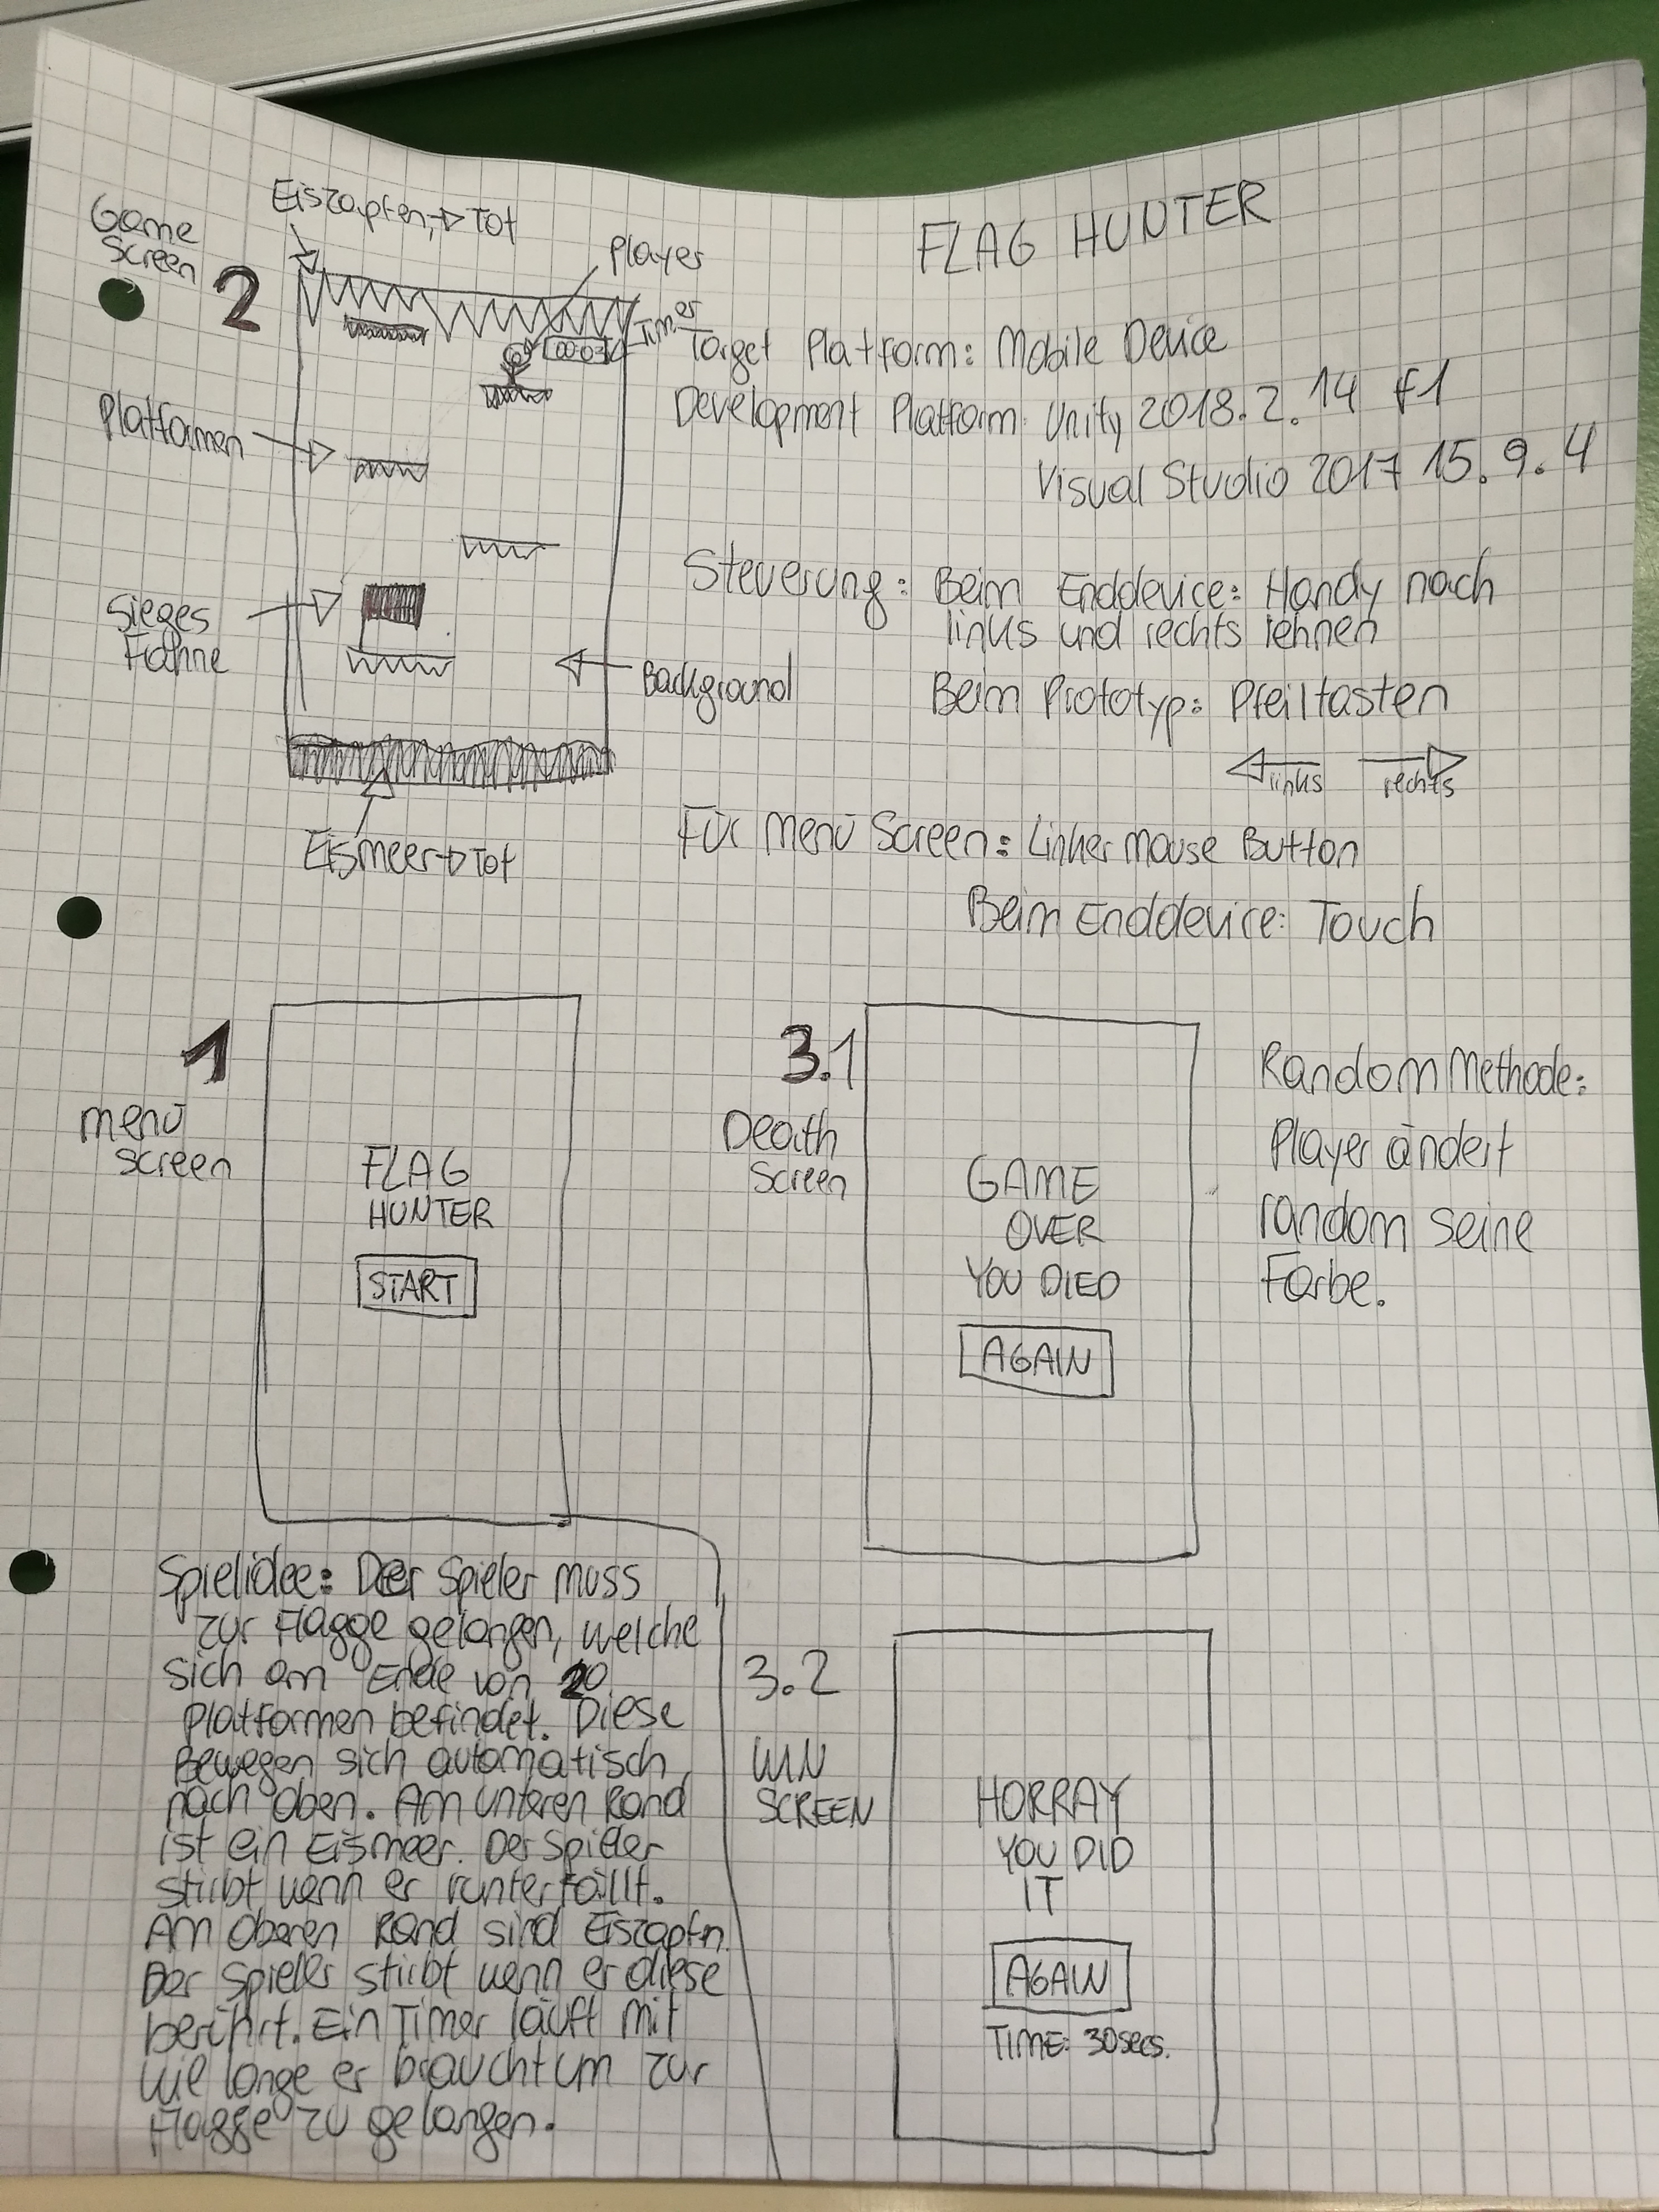 FLAG HUNTER
Game
Screen
2
Eiszapfen, → Tot
Player
Timer
Platformen
Sieges
Fahne
Background
Eismeer → Tot
Target Platform: Mobile Device
Development Platform: Unity 2018.2.14 f1
Visual Studio 2017 15.9.4
Steuerung: Beim Enddevice: Handy nach
links und rechts lehnen
Beim Prototyp: Pfeiltasten
links rechts
Für Menü Screen: Linker Mouse Button
Beim Enddevice: Touch
1
Menü
Screen
FLAG
HUNTER
START
3.1
Death
Screen
GAME
OVER
YOU DIED
AGAIN
Random Methode:
Player ändert
random seine
Farbe.
Spielidee: Der Spieler muss
zur Flagge gelangen, welche
sich am Ende von 20
Platformen befindet. Diese
Bewegen sich automatisch
nach oben. Am unteren Rand
ist ein Eismeer. Der Spieler
stirbt wenn er runterfällt.
Am oberen Rand sind Eiszapfn.
Der Spieler stirbt wenn er diese
berührt. Ein Timer läuft mit
wie lange er braucht um zur
Flagge zu gelangen.
3.2
WIN
SCREEN
HORRAY
YOU DID
IT
AGAIN
TIME: 30secs.